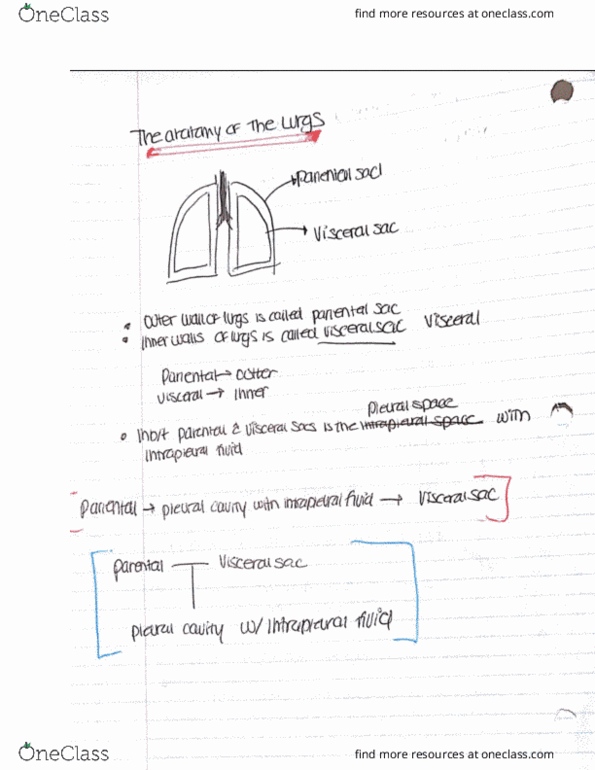 OneClass
find more resources at oneclass.com
The anatomy of The lungs
Pariental sacl
Visceral sac
outer wall of lungs is called pariental sac
inner walls of lungs is called visceral sac Visceral
Pariental → outter
Visceral → Inner
Pleural space
Parental & visceral sacs is the intrapleural space with
intrapleural fluid
Pariental → pleural cavity with intrapleural fluid → Visceral sac
Parental Visceral sac
pleural cavity w/ intrapleural fluid
OneClass
find more resources at oneclass.com